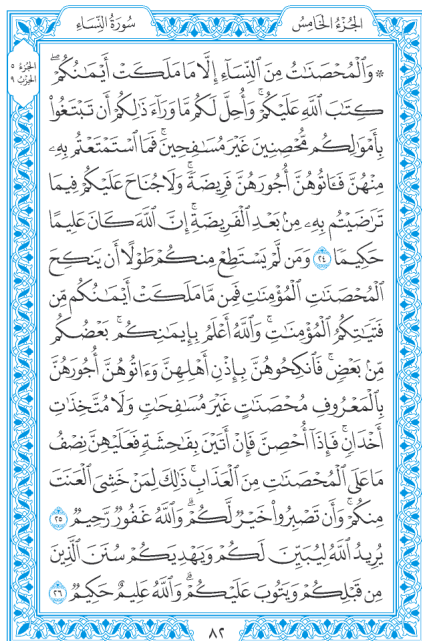 الجُزْءُ الخَامِسُ
سُورَةُ النِّسَاءِ
الجزء ٥
الحزب ٩
* وَٱلْمُحْصَنَٰتُ مِنَ ٱلنِّسَآءِ إِلَّا مَا مَلَكَتْ أَيْمَٰنُكُمْۖ
كِتَٰبَ ٱللَّهِ عَلَيْكُمْۚ وَأُحِلَّ لَكُم مَّا وَرَآءَ ذَٰلِكُمْ أَن تَبْتَغُوا۟
بِأَمْوَٰلِكُم مُّحْصِنِينَ غَيْرَ مُسَٰفِحِينَۚ فَمَا ٱسْتَمْتَعْتُم بِهِۦ
مِنْهُنَّ فَـَٔاتُوهُنَّ أُجُورَهُنَّ فَرِيضَةًۚ وَلَا جُنَاحَ عَلَيْكُمْ فِيمَا
تَرَٰضَيْتُم بِهِۦ مِنۢ بَعْدِ ٱلْفَرِيضَةِۚ إِنَّ ٱللَّهَ كَانَ عَلِيمًا
حَكِيمًا ٢٤ وَمَن لَّمْ يَسْتَطِعْ مِنكُمْ طَوْلًا أَن يَنكِحَ
ٱلْمُحْصَنَٰتِ ٱلْمُؤْمِنَٰتِ فَمِن مَّا مَلَكَتْ أَيْمَٰنُكُم مِّن
فَتَيَٰتِكُمُ ٱلْمُؤْمِنَٰتِۚ وَٱللَّهُ أَعْلَمُ بِإِيمَٰنِكُمۚ بَعْضُكُم
مِّنۢ بَعْضٍۚ فَٱنكِحُوهُنَّ بِإِذْنِ أَهْلِهِنَّ وَءَاتُوهُنَّ أُجُورَهُنَّ
بِٱلْمَعْرُوفِ مُحْصَنَٰتٍ غَيْرَ مُسَٰفِحَٰتٍ وَلَا مُتَّخِذَٰتِ
أَخْدَانٍۚ فَإِذَآ أُحْصِنَّ فَإِنْ أَتَيْنَ بِفَٰحِشَةٍ فَعَلَيْهِنَّ نِصْفُ
مَا عَلَى ٱلْمُحْصَنَٰتِ مِنَ ٱلْعَذَابِۚ ذَٰلِكَ لِمَنْ خَشِىَ ٱلْعَنَتَ
مِنكُمْۚ وَأَن تَصْبِرُوا۟ خَيْرٌ لَّكُمْۗ وَٱللَّهُ غَفُورٌ رَّحِيمٌ ٢٥
يُرِيدُ ٱللَّهُ لِيُبَيِّنَ لَكُمْ وَيَهْدِيَكُمْ سُنَنَ ٱلَّذِينَ
مِن قَبْلِكُمْ وَيَتُوبَ عَلَيْكُمْۗ وَٱللَّهُ عَلِيمٌ حَكِيمٌ ٢٦
٨٢